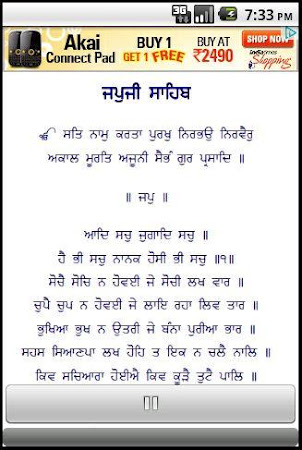 3G 7:33 PM
Akai Connect Pad BUY 1 GET 1 FREE BUY AT ₹2490 SHOP NOW indiatimes Shopping
ਜਪੁਜੀ ਸਾਹਿਬ
ੴ ਸਤਿ ਨਾਮੁ ਕਰਤਾ ਪੁਰਖੁ ਨਿਰਭਉ ਨਿਰਵੈਰੁ
ਅਕਾਲ ਮੂਰਤਿ ਅਜੂਨੀ ਸੈਭੰ ਗੁਰ ਪ੍ਰਸਾਦਿ ॥
॥ ਜਪੁ ॥
ਆਦਿ ਸਚੁ ਜੁਗਾਦਿ ਸਚੁ ॥
ਹੈ ਭੀ ਸਚੁ ਨਾਨਕ ਹੋਸੀ ਭੀ ਸਚੁ ॥੧॥
ਸੋਚੈ ਸੋਚਿ ਨ ਹੋਵਈ ਜੇ ਸੋਚੀ ਲਖ ਵਾਰ ॥
ਚੁਪੈ ਚੁਪ ਨ ਹੋਵਈ ਜੇ ਲਾਇ ਰਹਾ ਲਿਵ ਤਾਰ ॥
ਭੁਖਿਆ ਭੁਖ ਨ ਉਤਰੀ ਜੇ ਬੰਨਾ ਪੁਰੀਆ ਭਾਰ ॥
ਸਹਸ ਸਿਆਣਪਾ ਲਖ ਹੋਹਿ ਤ ਇਕ ਨ ਚਲੈ ਨਾਲਿ ॥
ਕਿਵ ਸਚਿਆਰਾ ਹੋਈਐ ਕਿਵ ਕੂੜੈ ਤੁਟੈ ਪਾਲਿ ॥